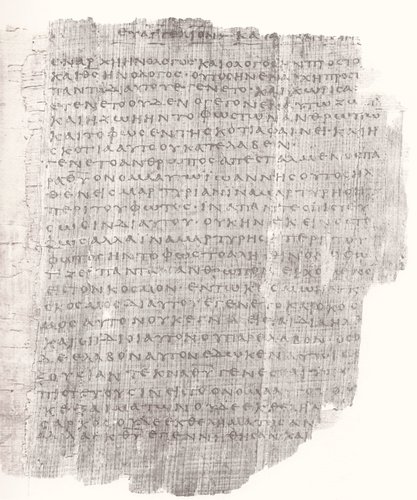 ΕΥΑΓΓΕΛΙΟΝ ΚΑ
ΕΝΑΡΧΗΗΝΟΛΟΓΟϹΚΑΙΟΛΟΓΟϹΗΝΠΡΟϹΤΟ
ΚΑΙΘϹΗΝΟΛΟΓΟϹ·ΟΥΤΟϹΗΝΕΝΑΡΧΗΠΡΟϹΤ
ΠΑΝΤΑΔΙΑΥΤΟΥΕΓΕΝΕΤΟ·ΚΑΙΧΩΡΙϹΑ
ΕΓΕΝΕΤΟΟΥΔΕΝΟΓΕΓΟΝΕΝΕΝΑΥΤΩΖΩ
ΚΑΙΗΖΩΗΗΝΤΟΦΩϹΤΩΝΑΝΘΡΩΠΩ
ΚΑΙΤΟΦΩϹΕΝΤΗϹΚΟΤΙΑΦΑΙΝΕΙ·ΚΑΙΗ
ϹΚΟΤΙΑΑΥΤΟΟΥΚΑΤΕΛΑΒΕΝ·
ΓΕΝΕΤΟΑΝΘΡΩΠΟϹΑΠΕϹΤΑΛΜΕΝΟϹΠΑ
ΡΑΘΥΟΝΟΜΑΑΥΤΩΙΩΑΝΝΗϹΟΥΤΟϹΗΛ
ΘΕΝΕΙϹΜΑΡΤΥΡΙΑΝΙΝΑΜΑΡΤΥΡΗϹΗ
ΠΕΡΙΤΟΥΦΩΤΟϹ·ΙΝΑΠΑΝΤΕϹΠΙϹΤΕΥ
ϹΩϹΙΝΔΙΑΥΤΟΥ·ΟΥΚΗΝΕΚΕΙΝΟϹΤΟ
ΦΩϹΑΛΛΑΙΝΑΜΑΡΤΥΡΗϹΗΠΕΡΙΤΟΥ
ΦΩΤΟϹΗΝΤΟΦΩϹΤΟΑΛΗΘΙΝΟΝΟΦΩ
ΤΙΖΕΙΠΑΝΤΑΑΝΘΡΩΠΟΝΕΡΧΟΜΕΝΟΝ
ΕΙϹΤΟΝΚΟϹΜΟΝ·ΕΝΤΩΚΟϹΜΩΗΝΚΑΙ
ΟΚΟϹΜΟϹΔΙΑΥΤΟΥΕΓΕΝΕΤΟΚΑΙΟΚΟϹ
ΜΟϹΑΥΤΟΝΟΥΚΕΓΝΩΕΙϹΤΑΙΔΙΑΗΛ
ΚΑΙΟΙΙΔΙΟΙΑΥΤΟΝΟΥΠΑΡΕΛΑΒΟΝΟϹ
ΔΕΕΛΑΒΟΝΑΥΤΟΝΕΔΩΚΕΝΑΥΤΟΙϹΕΞ
ΟΥϹΙΑΝΤΕΚΝΑΘΥΓΕΝΕϹΘΑΙΤΟΙϹ
ΠΙϹΤΕΥΟΥϹΙΝΕΙϹΤΟΟΝΟΜΑΑ
ΚΕΞΑΙΜΑΤΩΝΟΥΔΕΕΚΘΕΛΗ
ϹΑΡΚΟϹΟΥΔΕΕΚΘΕΛΗΜΑΤΟϹΑΝ
ΑΛΛΑΕΚΘΥΕΓΕΝΝΗΘΗϹΑΝΚΑΙ